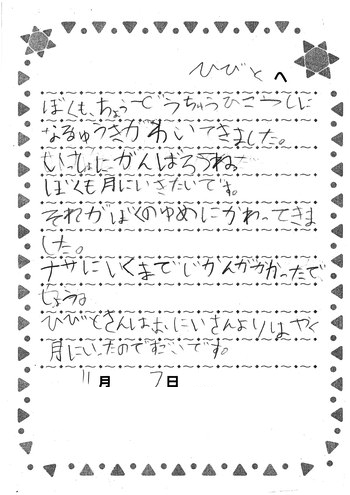 ひびとへ
ぼくも、ちょうどうちゅうひこうしに
なるゆうきがわいてきました。
いっしょにがんばろうね。
ぼくも月にいきたいです。
それがぼくのゆめにかわってきま
した。
ナサにいくまでじかんがかかったで
しょう。
ひびとさんはおにいさんよりはやく
月にいったのですごいです。
11月 7日